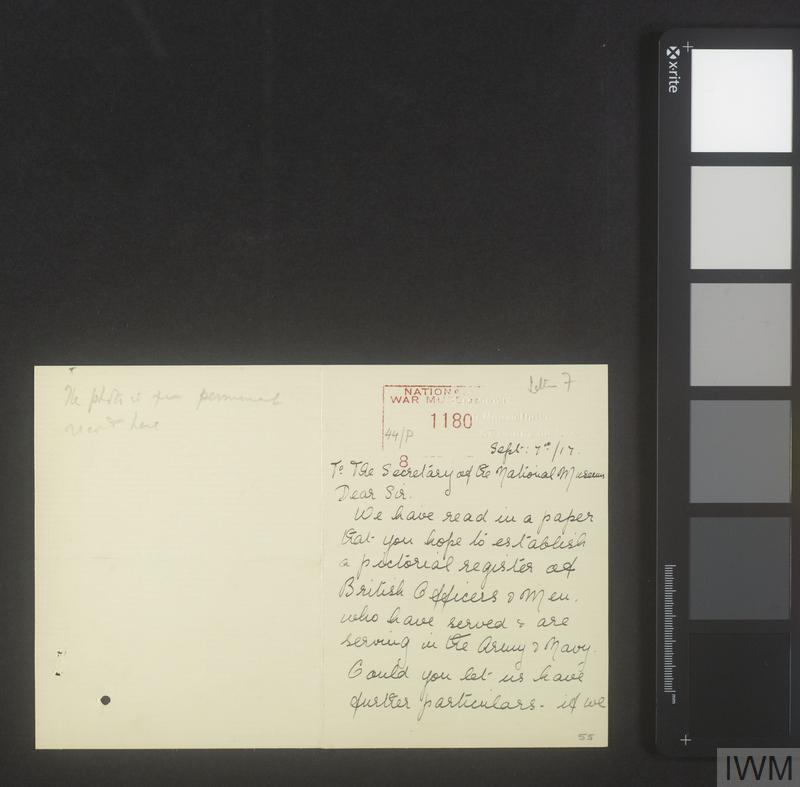 The photo is
permanent
here
Letter 7
NATIONAL
WAR MUSEUM
1180
44/P
8
Sept: 7th/17.
To The Secretary of the National Museum
Dear Sir.
We have read in a paper
that you hope to establish
a pictorial register of
British Officers & Men.
who have served & are
serving in the Army & Navy.
Could you let us have
further particulars - if we
55
x-rite
mm
IWM